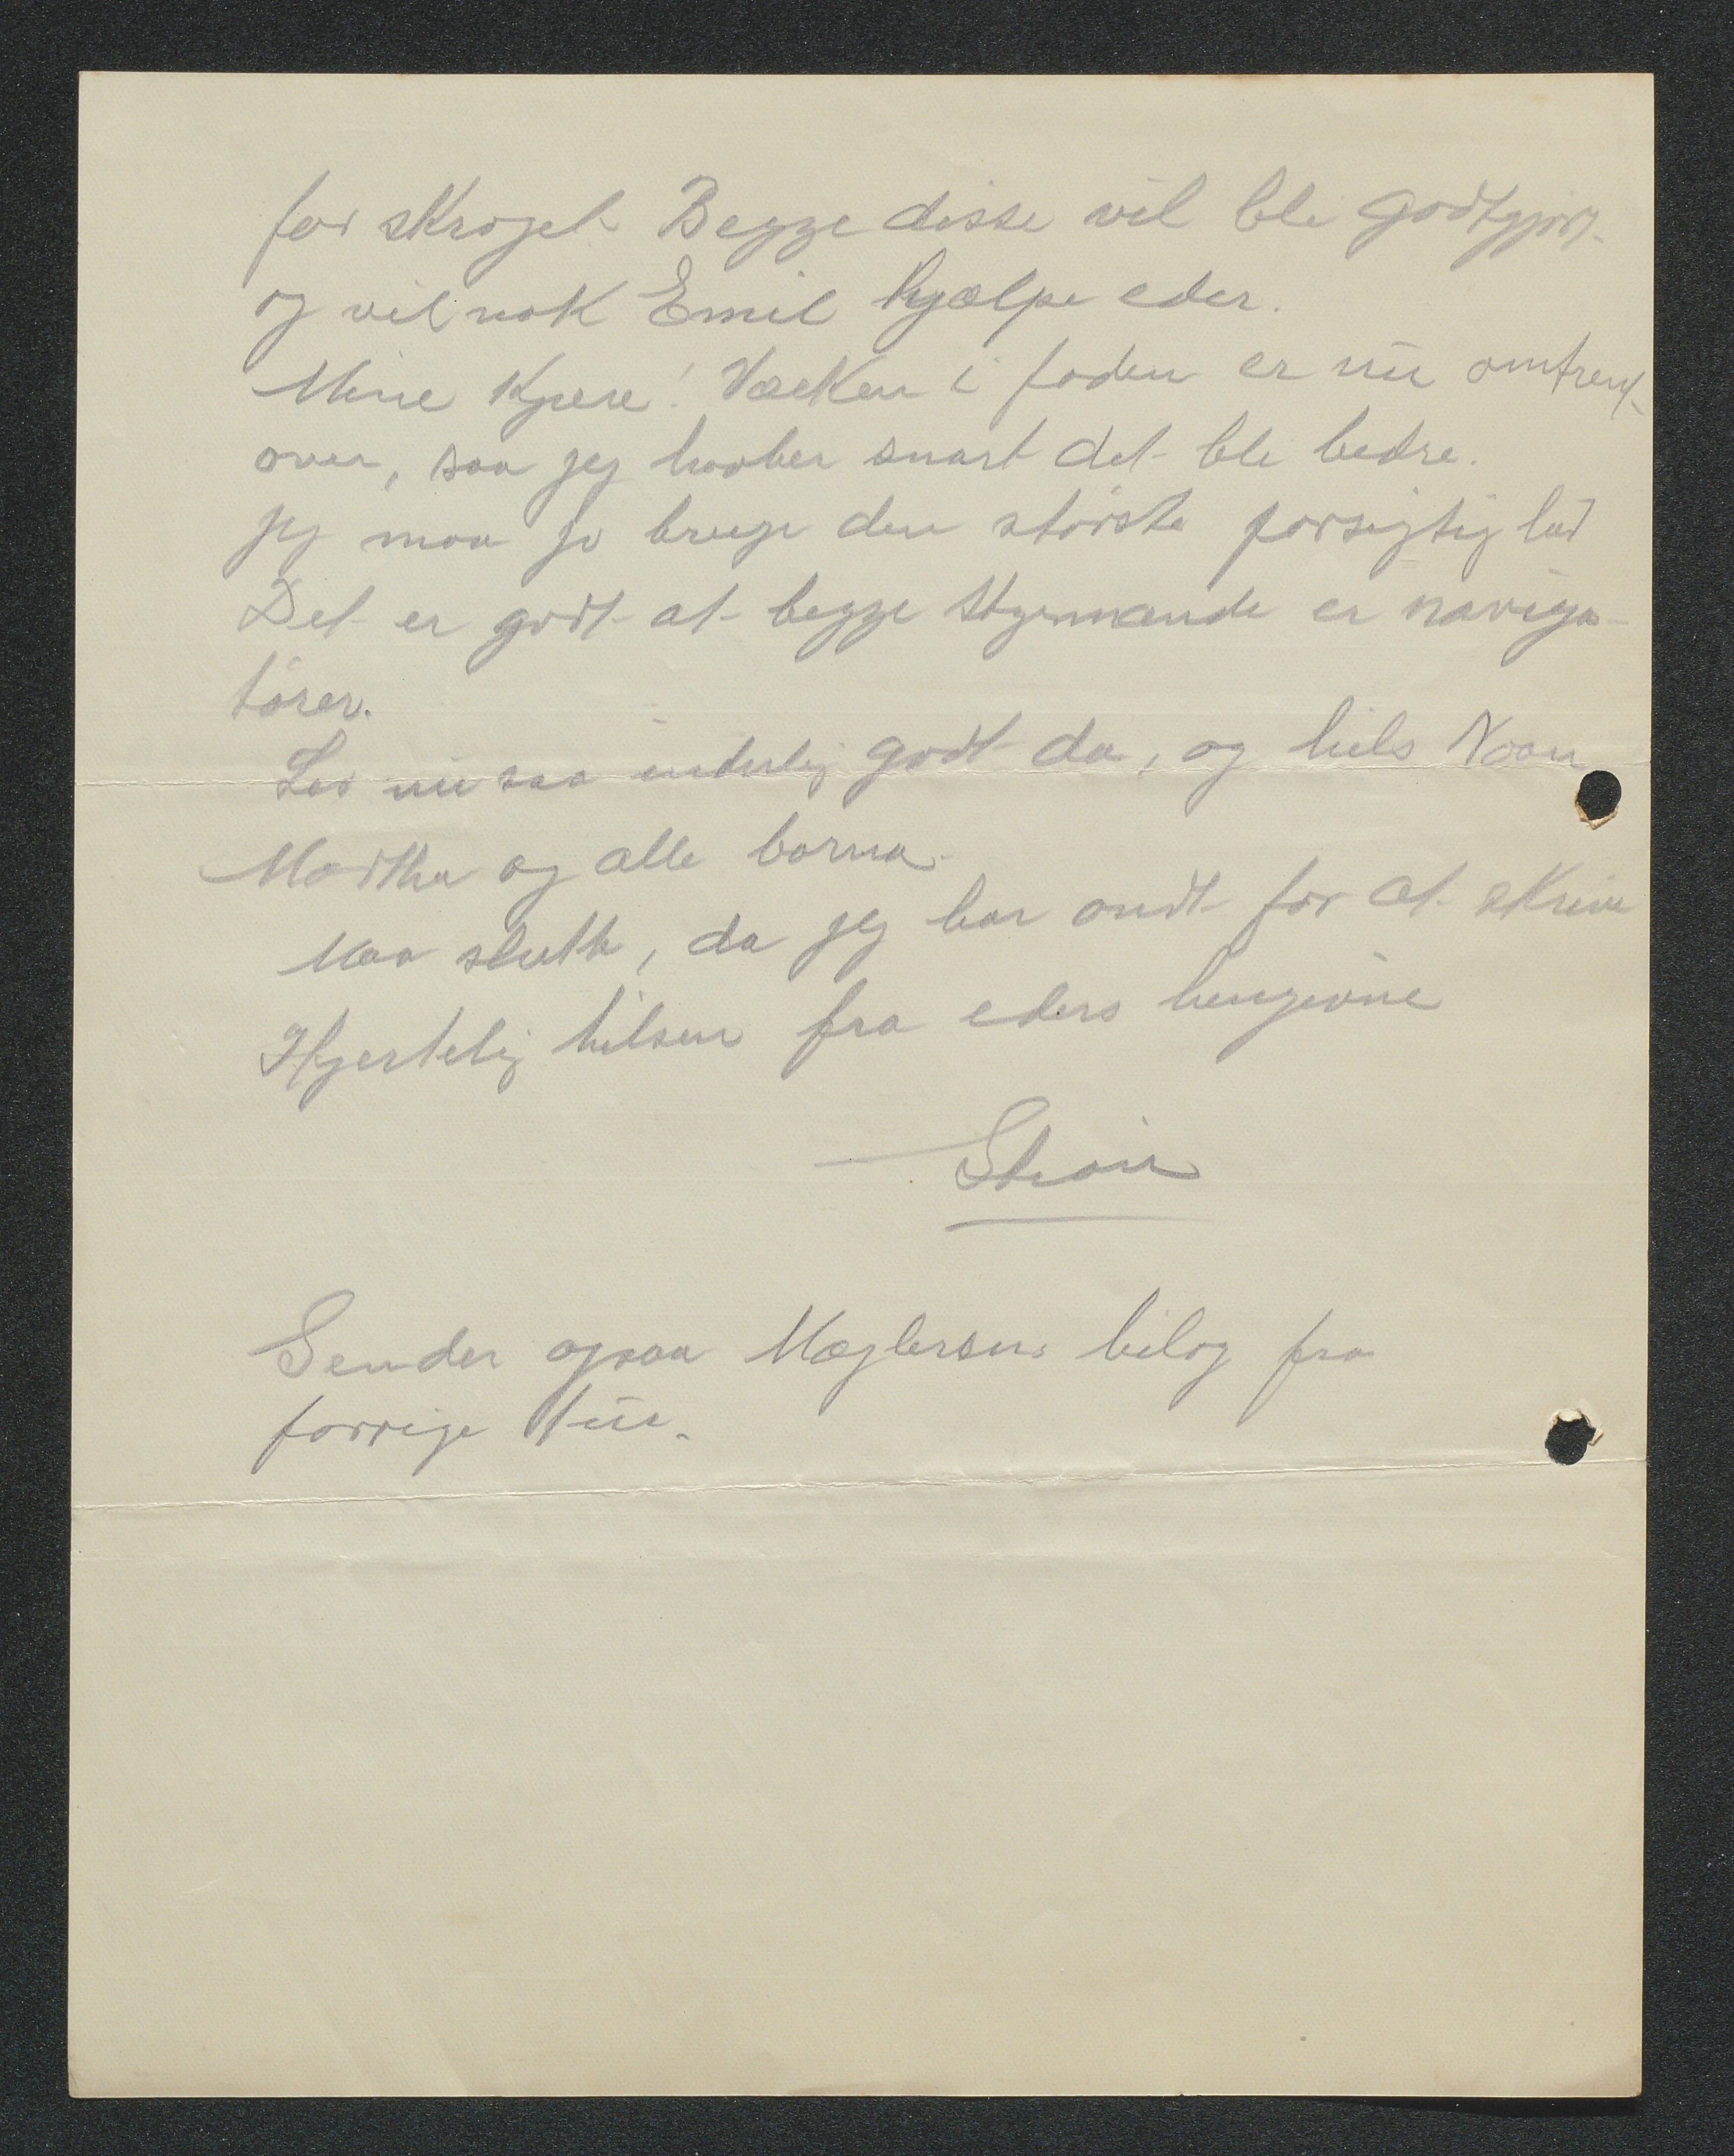 for skroget. Begge disse vil bli godtgjort.
og vil nok Emil hjælpe eder.
Mine Kjære! Værken i foden er nu omtrent
over, saa jeg haaber snart det bli bedre.
jeg maa jo bruge den største forsigtighed
Det er godt at begge Styrmænde er naviga-
tører.
Lev nu saa inderlig godt da, og hils
Martha og alle barna.
Maa slutte, da jeg har ondt for at skrive
Hjertelig hilsen fra eders hengivne
Sender ogsaa Mæglerens bilag fra
forrige tur.